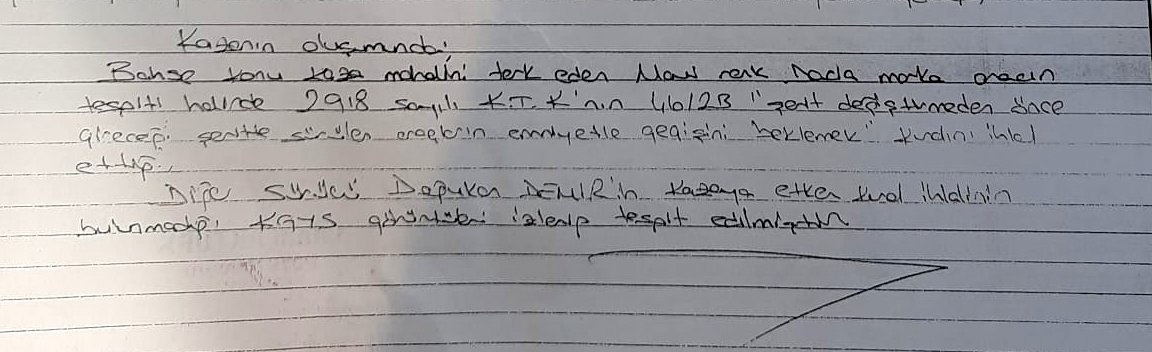 Kazanın oluşumunda;
Bahse konu kaza mahalini terk eden Mavi renk Dacia marka aracın
tespiti halinde 2918 sayılı K.T.K'nın 46/2B "şerit değiştirmeden önce
gireceği şeritte sürülen araçların emniyetle geçişini beklemek" kuralını ihlal
ettiği,
Diğer Sürücü Doğukan DEMİR'in kazaya etken kural ihlalinin
bulunmadığı KGYS görüntüleri izlenip tespit edilmiştir